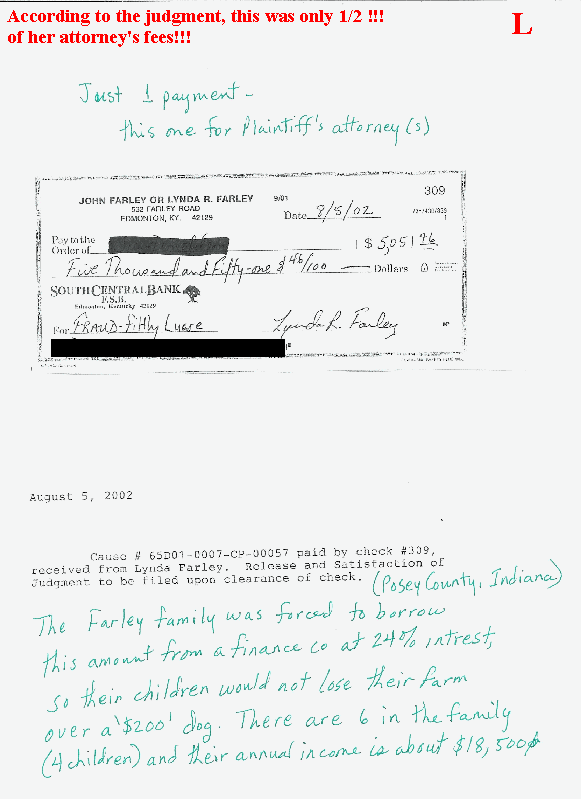 According to the judgment, this was only 1/2 !!!
of her attorney's fees!!!
L
Just 1 payment -
this one for Plaintiff's attorney(s)
309
JOHN FARLEY OR LYNDA R. FARLEY
9/01
532 FARLEY ROAD
EDMONTON, KY. 42129
Date 8/5/02
Pay to the
Order of
$ 5,051 46
Five Thousand and Fifty-one & 46/100 Dollars
SOUTH CENTRAL BANK
F.S.B.
Edmonton, Kentucky 42129
For FRAUD-Filthy Lucre
Lynda R. Farley
August 5, 2002
Cause # 65D01-0007-CP-00057 paid by check #309,
received from Lynda Farley. Release and Satisfaction of
Judgment to be filed upon clearance of check. (Posey County, Indiana)
The Farley family was forced to borrow
this amount from a finance co at 24% intrest,
so their children would not lose their farm
over a '$200' dog. There are 6 in the family
(4 children) and their annual income is about $18,500